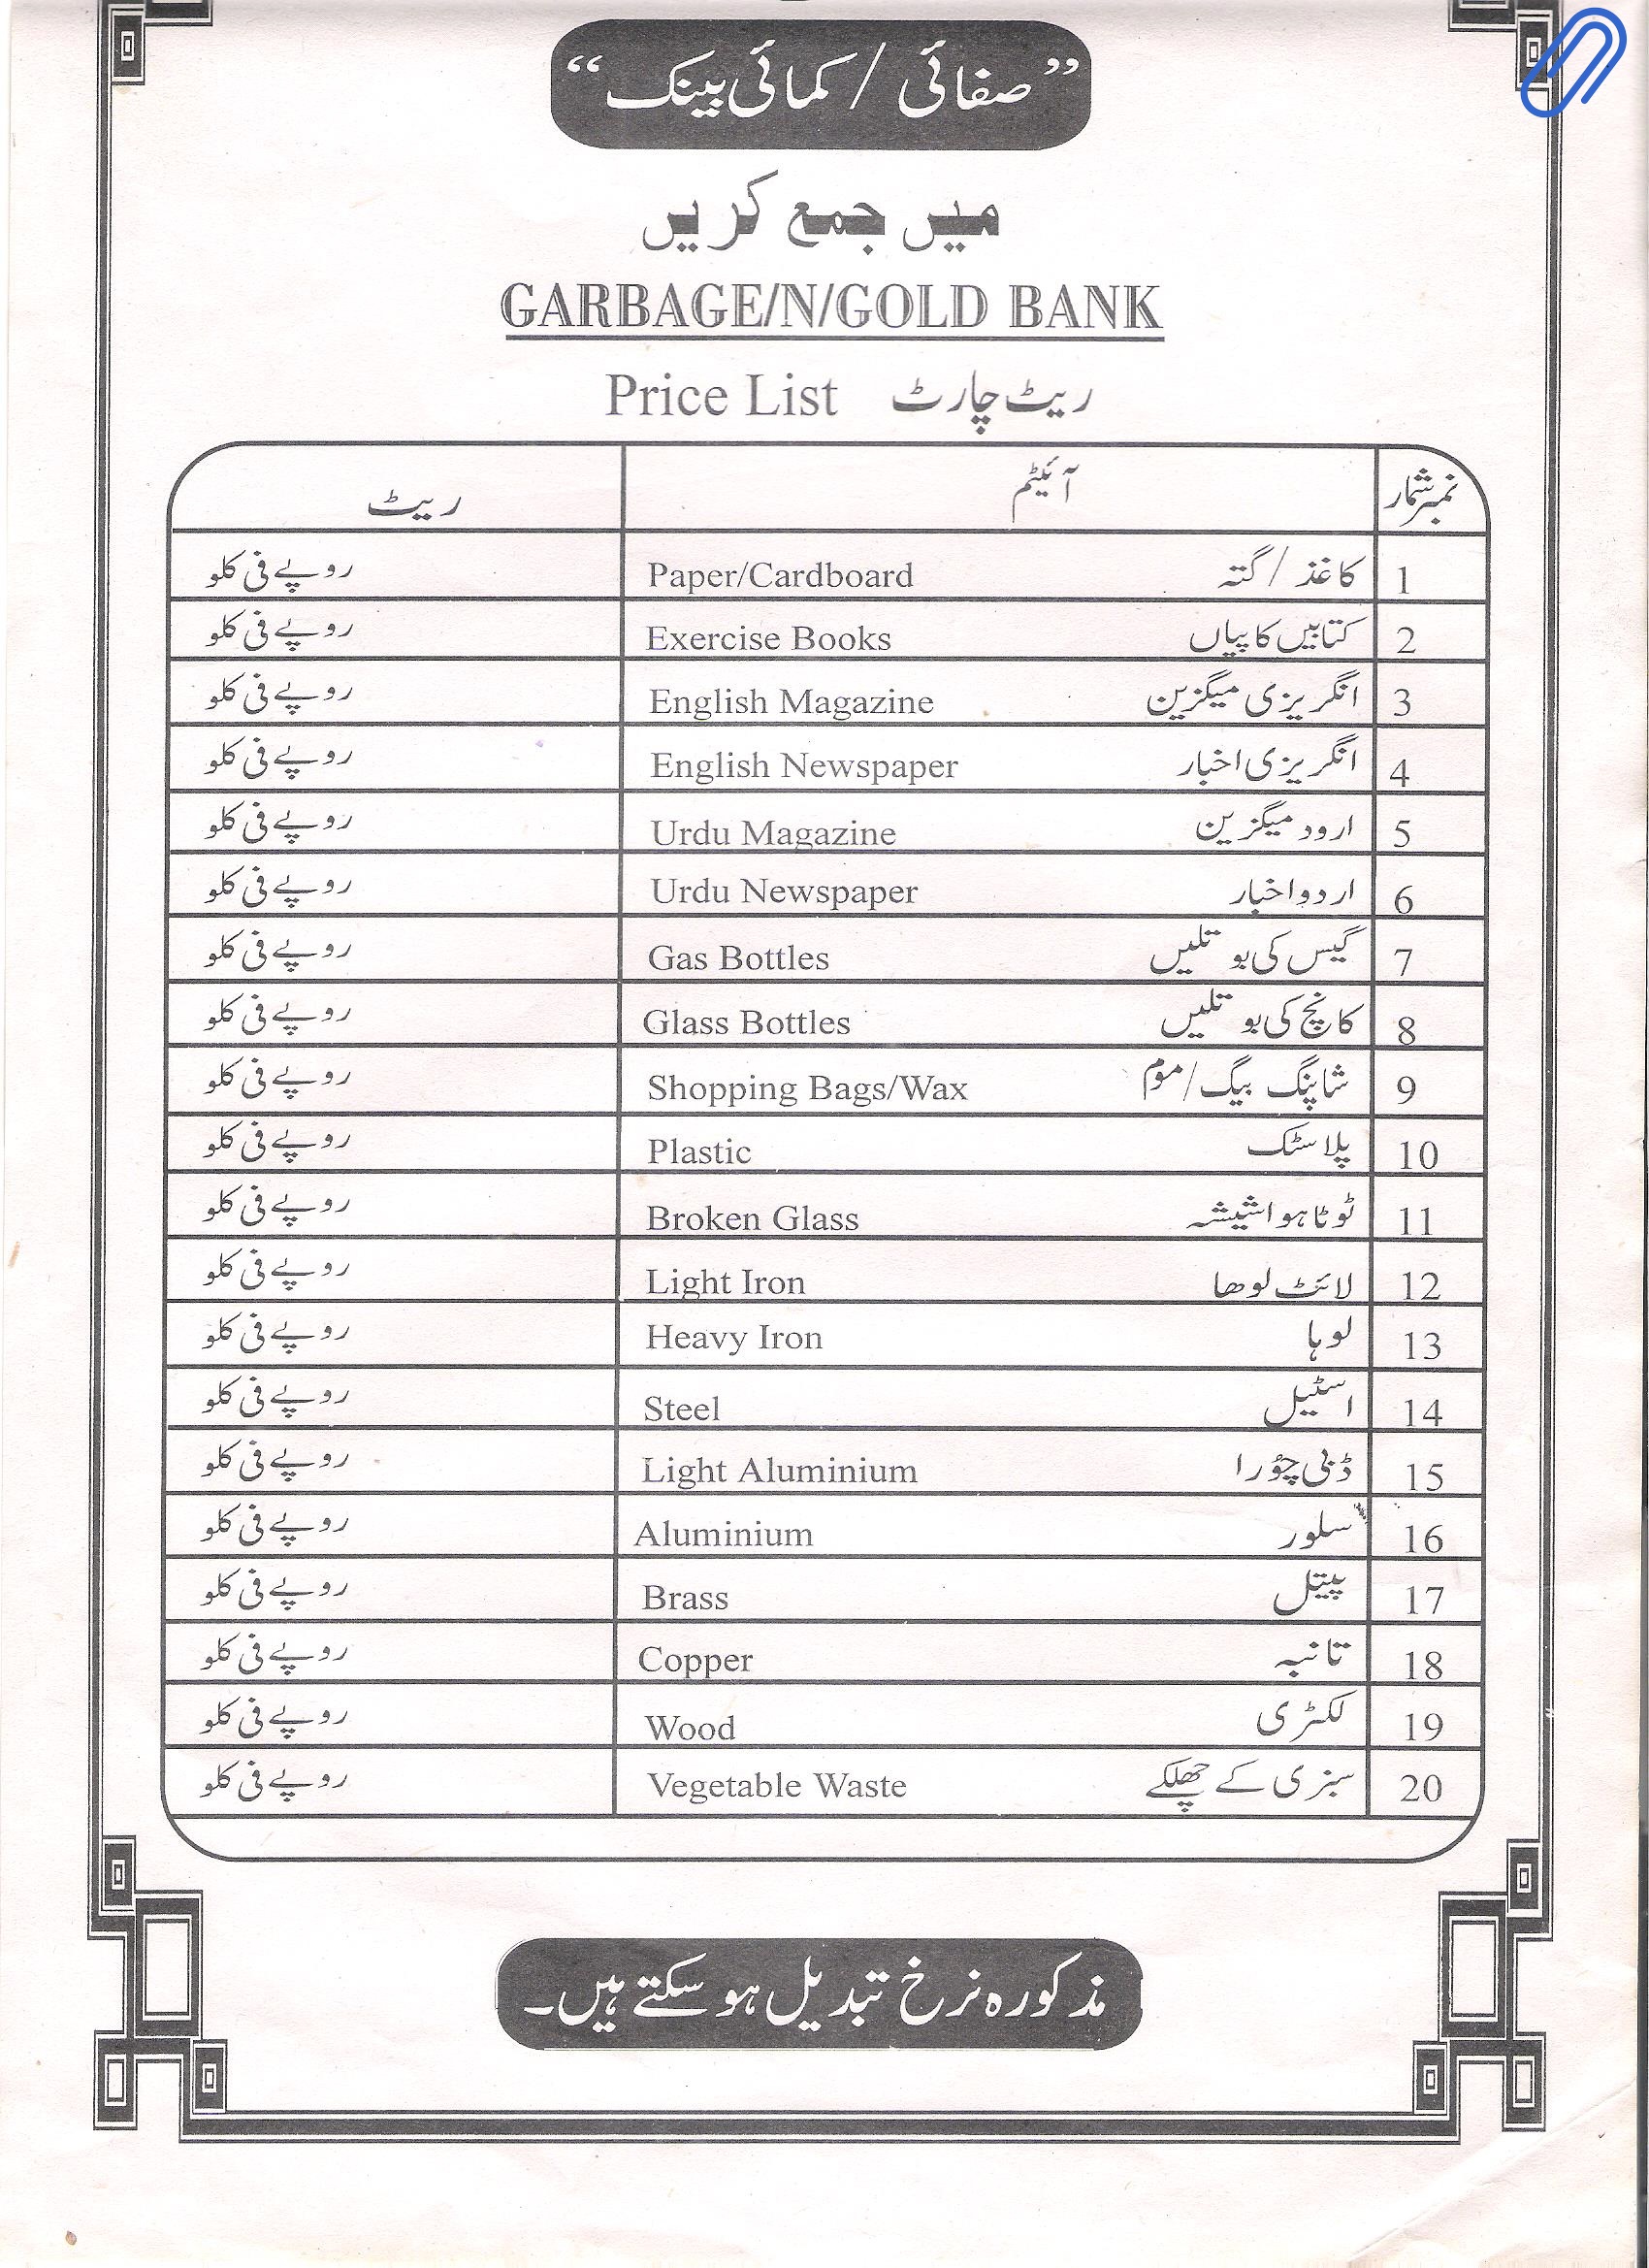 ”صفائی / کمائی بینک“
میں جمع کریں
GARBAGE/N/GOLD BANK
Price List ریٹ چارٹ
نمبر شمار آئیٹم ریٹ
1 کاغذ / گتہ Paper/Cardboard روپے فی کلو
2 کتابیں کاپیاں Exercise Books روپے فی کلو
3 انگریزی میگزین English Magazine روپے فی کلو
4 انگریزی اخبار English Newspaper روپے فی کلو
5 ارود میگزین Urdu Magazine روپے فی کلو
6 اردو اخبار Urdu Newspaper روپے فی کلو
7 گیس کی بوتلیں Gas Bottles روپے فی کلو
8 کانچ کی بوتلیں Glass Bottles روپے فی کلو
9 شاپنگ بیگ/موم Shopping Bags/Wax روپے فی کلو
10 پلاسٹک Plastic روپے فی کلو
11 ٹوٹا ہوا شیشہ Broken Glass روپے فی کلو
12 لائٹ لوھا Light Iron روپے فی کلو
13 لوہا Heavy Iron روپے فی کلو
14 اسٹیل Steel روپے فی کلو
15 ڈبی چُورا Light Aluminium روپے فی کلو
16 سلور Aluminium روپے فی کلو
17 پیتل Brass روپے فی کلو
18 تانبہ Copper روپے فی کلو
19 لکڑی Wood روپے فی کلو
20 سبزی کے چھلکے Vegetable Waste روپے فی کلو
مذکورہ نرخ تبدیل ہو سکتے ہیں۔